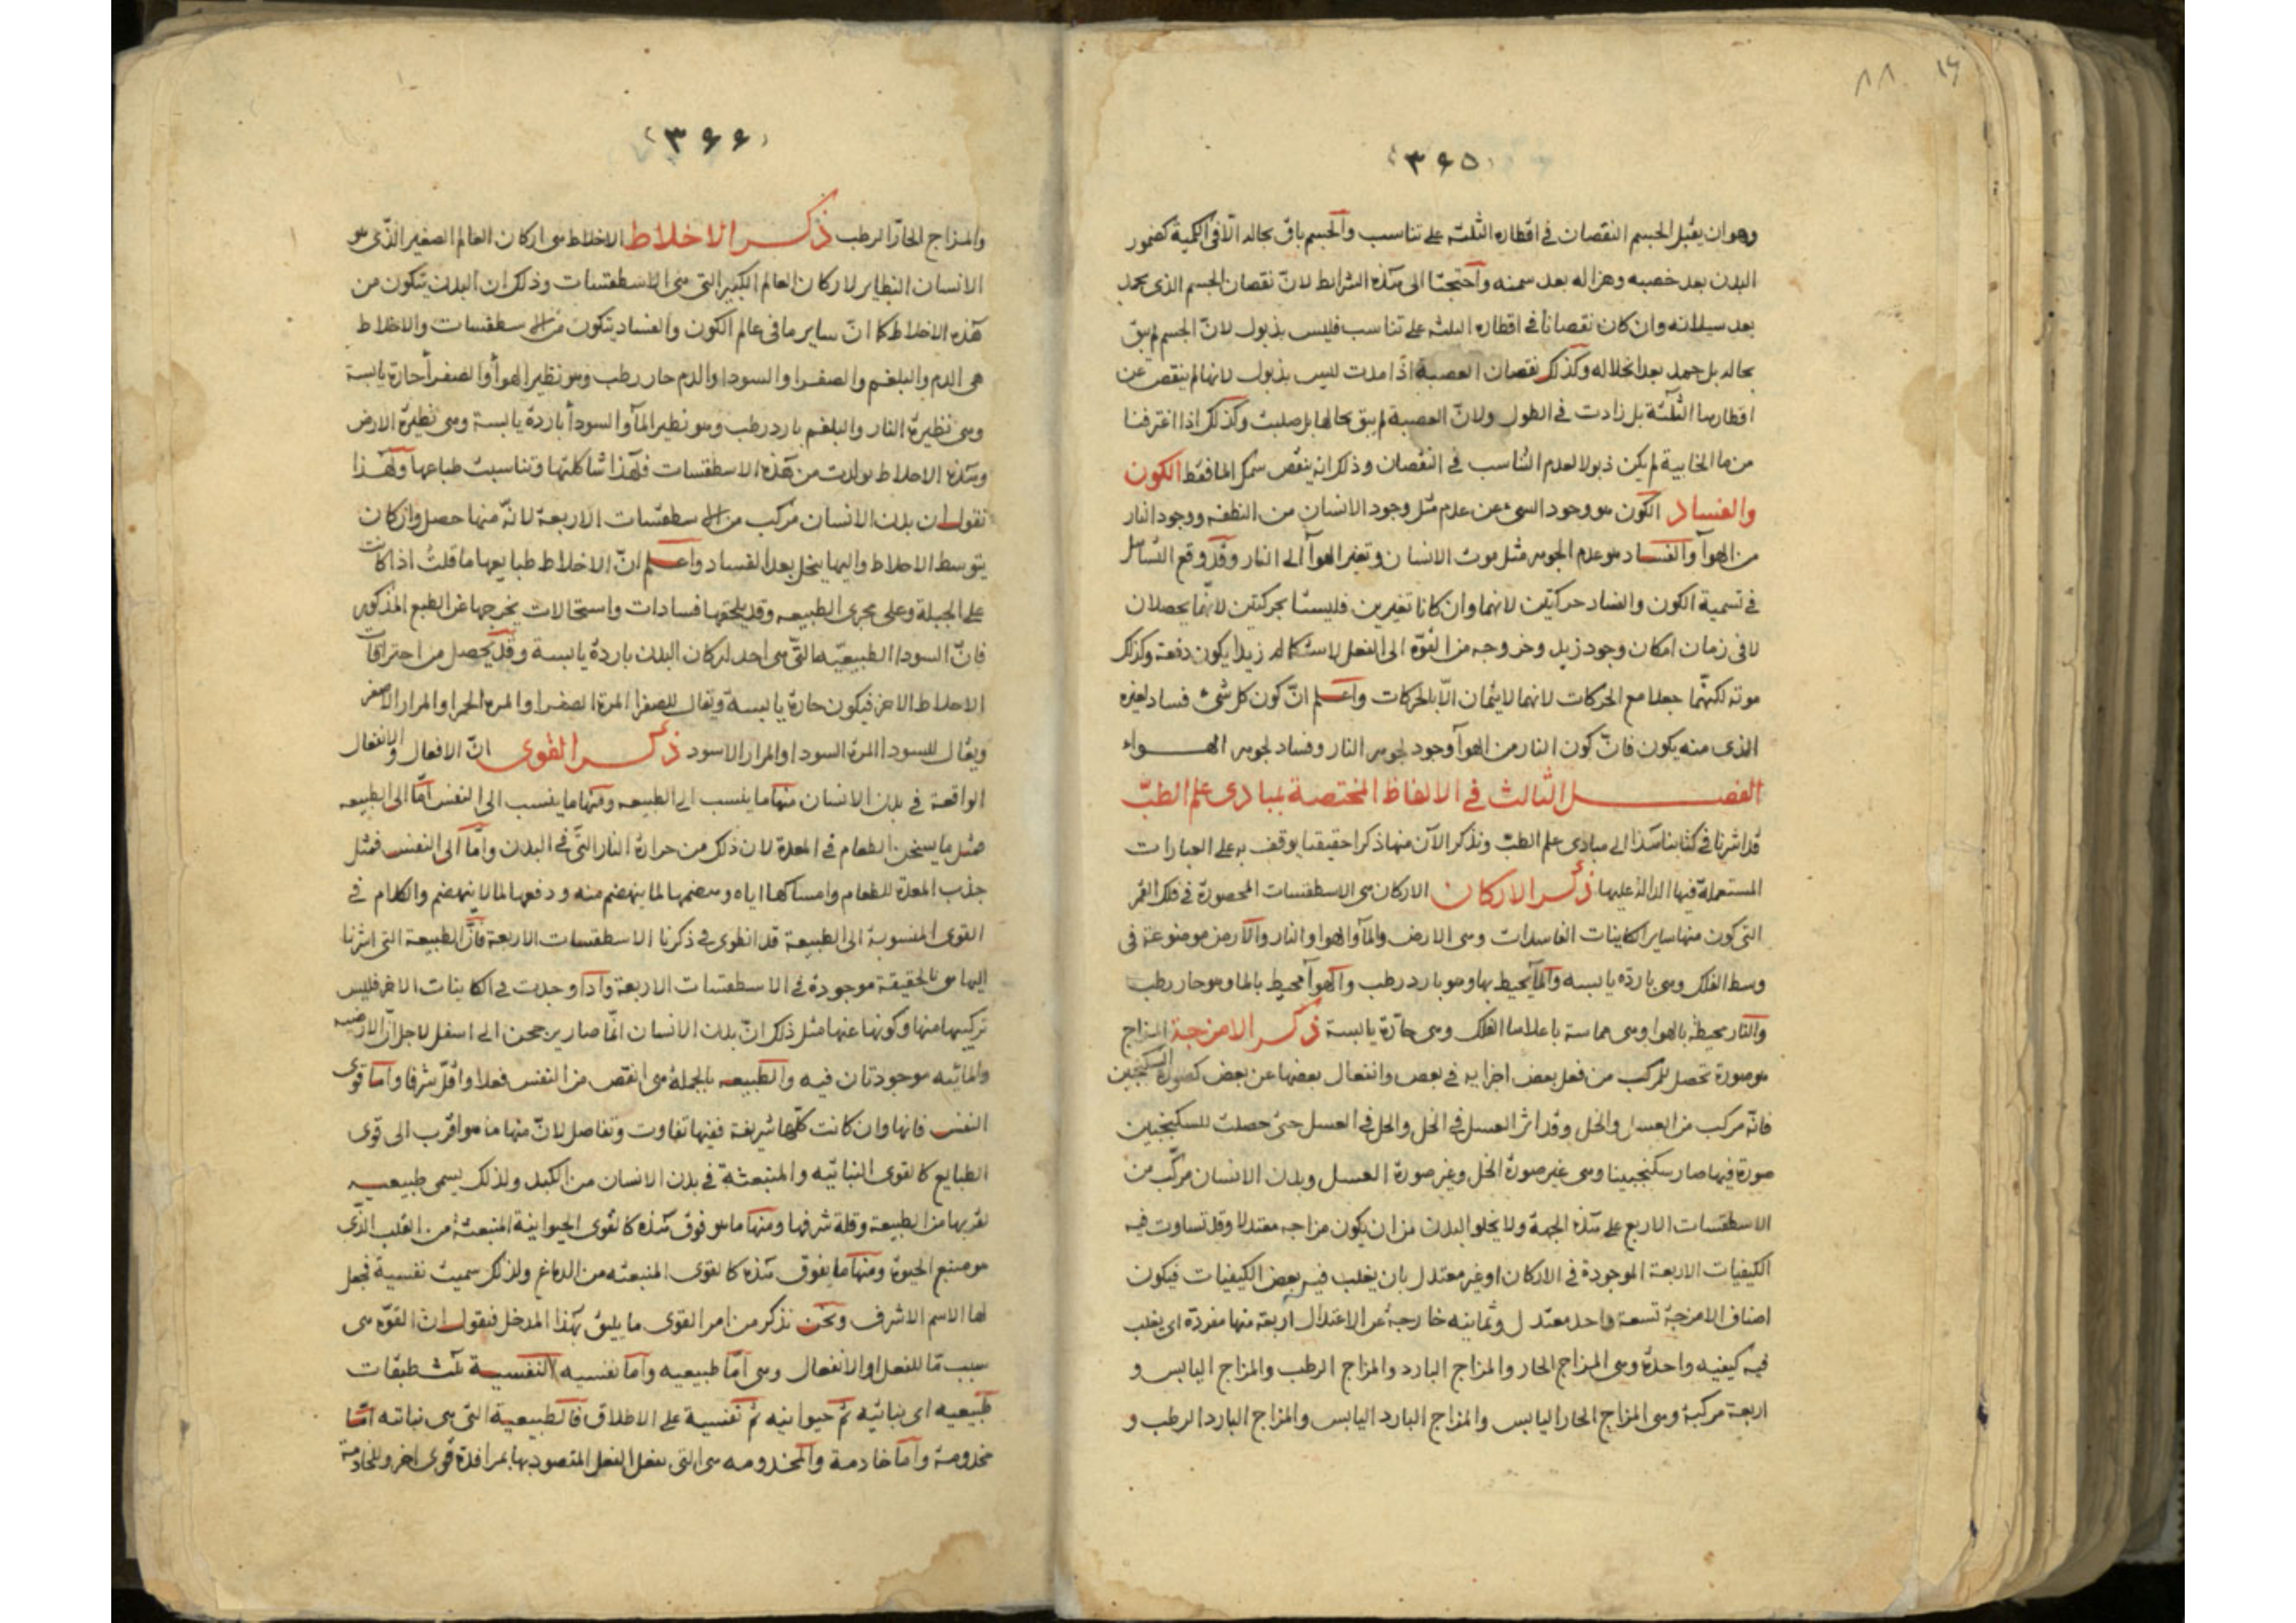 ۱۶ ۸۸
(۳۶۵)
وهو ان يقبل الجسم النقصان فى اقطاره الثلثة على تناسب والجسم باق بحاله الا فى الكمية كضمور
البدن بعد خصبه وهزاله بعد سمنه واحتجنا الى هذه الشرايط لانّ نقصان الجسم الذى يجمد
بعد سيلانه وان كان نقصانا فى اقطاره الثلثة على تناسب فليس بذبول لانّ الجسم لم يبق
بحاله بل جمد بعد انحلاله وكذلك نقصان العصبة اذا مدت ليس بذبول لانها لم ينقص عن
اقطارها الثلثة بل زادت فى الطول ولانّ العصبة لم يبق بحالها بل صلبت وكذلك اذا اغترفنا
من ما الخابية لم يكن ذبولا لعدم التناسب فى النقصان وذلك انه ينقص سمك الما فقط الكون
والفساد الكون هو وجود الشىء عن عدم مثل وجود الانسان من النطفه ووجود النار
من الهوآ والفساد هو عدم الجوهر مثل موت الانسان وتغير الهوآ الى النار وقد وقع التساهل
فى تسمية الكون والفساد حركتين لانهما وان كانا تغيرين فليستا بحركتين لانّهما يحصلان
لا فى زمان امكان وجود زيد وخروجه من القوّة الى الفعل لاستكماله زيدا يكون دفعة وكذلك
موته لكنهّما جعلا مع الحركات لانهما لايتمان الّا بالحركات واعلم انّ كون كل شىء فساد لغيره
الذى منه يكون فانّ كون النار من الهوآ وجود لجوهر النار وفساد لجوهر الهواء
الفصل الثالث فى الالفاظ المختصة بمبادى علم الطبّ
قد اشرنا فى كتابنا هذا الى مبادى علم الطبّ ونذكر الآن منها ذكرا حقيقيا يوقف به على العبارات
المستعملة فيها الدالّة عليها ذكر الاركان الاركان هى الاسطقسات المحصورة فى فلك القمر
التى كون منها ساير الكاينات الفاسدات وهى الارض والمآ والهوا والنار والارض موضوعة فى
وسط الفلك وهى باردة يابسه والمآ يحيط بها وهو بارد رطب والهوآ محيط بالما وهو حار رطب
والنار محيطة بالهوا وهى مماسة باعلاها الفلك وهى حارّة يابسة ذكر الامزجة المزاج
هو صورة تحصل للمركب من فعل بعض اجزايه فى بعض وانفعال بعضها عن بعض كصورة السكنجبين
فانّه مركب من العسل والخل وقد اثر العسل فى الخل والخل فى العسل حتى حصلت للسكنجبين
صورة فيها صار سكنجبينا وهى غير صورة الخل وغير صورة العسل وبدن الانسان مركّب من
الاسطقسات الاربع على هذه الجهة ولا يخلو البدن من ان يكون مزاجه معتدلا وقد تساوت فيه
الكيفيات الاربعة الموجودة فى الاركان او غير معتدل بان يغلب فيه بعض الكيفيات فيكون
اصناف الامزجة تسعة واحد معتدل وثمانيه خارجة عن الاعتدال اربعة منها مفردة اى يغلب
فيه كيفيه واحدة وهى المزاج الحار والمزاج البارد والمزاج الرطب والمزاج اليابس و
اربعة مركبة وهى المزاج الحار اليابس والمزاج البارد اليابس والمزاج البارد الرطب و
(۳۶۶)
والمزاج الحارّ الرطب ذكر الاخلاط الاخلاط هى اركان العالم الصغير الذى هو
الانسان النظاير لاركان العالم الكبير التى هى الاسطقسات وذلك ان البدن يتكون من
هذه الاخلاط كما انّ ساير ما فى عالم الكون والفساد يتكون من الاسطقسات والاخلاط
هى الدم والبلغم والصفرا والسودا والدم حار رطب وهو نظير الهوآ والصفرآ حارة يابسة
وهى نظيرة النار والبلغم بارد رطب وهو نظير المآ والسودأ باردة يابسة وهى نظيرة الارض
وهذه الاخلاط تولدت من هذه الاسطقسات فلهذا شاكلتها وتناسبت طباعها ولهذا
نقول ان بدن الانسان مركب من الاسطقسات الاربعة لانّه منها حصل وان كان
بتوسط الاخلاط واليها ينحل بعد الفساد واعلم انّ الاخلاط طبايعها ما قلتُ اذا كانت
على الجبلة وعلى مجرى الطبيعه وقد يلحقها فسادات واستحالات يخرجها عن الطبع المذكور
فانّ السودا الطبيعيّه التى هى احد اركان البدن باردة يابسة وقد يحصل من احتراقات
الاخلاط الاخر فيكون حارة يابسة ويقال للصفرا المرة الصفرا والمرة الحمرا والمرار الاصفر
ويقال للسودا المرة السودا والمرار الاسود ذكر القوى انّ الافعال والانفعال
الواقعة فى بدن الانسان منها ما ينسب الى الطبيعه ومنها ما ينسب الى النفس امّا الى الطبيعه
فمثل ما يسخن الطعام فى المعدة لان ذلك من حرارة النار التّى فى البدن وامّا الى النفس فمثل
جذب المعدة للطعام وامساكها اياه وهضمها لما ينهضم منه ودفعها لما لا ينهضم والكلام فى
القوى المنسوبة الى الطبيعة قد انطوى فى ذكرنا الاسطقسات الاربعة فانّ الطبيعة التى اشرنا
اليها هى بالحقيقة موجودة فى الاسطقسات الاربعة واذا وجدت فى الكاينات الاخر فليس
تركيبها منها وكونها عنها مثل ذلك انّ بدن الانسان انمّا صار يرجحن الى اسفل لاجل انّ الارضيه
والمائيه موجودتان فيه والطبيعه بالجملة هى انقص من النفس فعلا واقلّ شرفا وامّا قوى
النفس فانها وان كانت كلّها شريفة ففيها تفاوت وتفاضل لانّ منها ما هو اقرب الى قوى
الطبايع كالقوى النباتيه والمنبعثة فى بدن الانسان من الكبد ولذلك يسمى طبيعيه
لقربها من الطبيعة وقلة شرفها ومنها ما هو فوق هذه كالقوى الحيوانية المنبعثة من القلب الذّى
هو منبع الحيوة ومنها ما يفوق هذه كالقوى المنبعثه من الدماغ ولذلك سميت نفسية فجعل
لها الاسم الاشرف ونحن نذكر من امر القوى ما يليق بهذا المدخل فنقول ان القوّه هى
سبب مّا للفعل او الانفعال وهى امّا طبيعيه وامّا نفسيه النفسية ثلث طبقات
طبيعيه اى نباتيه ثمّ حيوانيه ثمّ نفسية على الاطلاق فالطبيعية التى هى نباتيه امّا
مخدومة وامّا خادمة والمخدومه هى التى تفعل الفعل المقصود بها بمرافدة قوى اخر وللخادمة